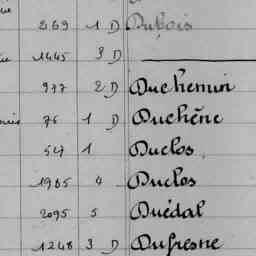 869 1 D Dubois
1445 3 D
977 2 D Duchemin
76 1 D Duchêne
547 1 Duclos
1985 4 Duclos
2095 5 Duédal
1248 3 D Dufresne